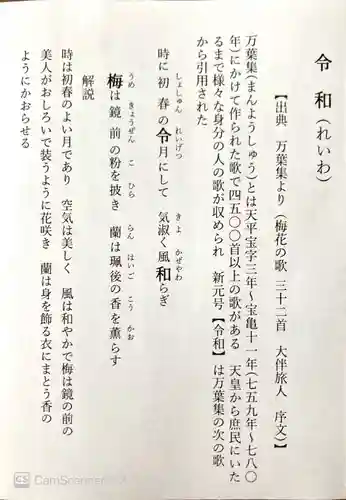 令和(れいわ)
【出典 万葉集より(梅花の歌 三十二首 大伴旅人 序文)】
万葉集(まんようしゅう)とは天平宝字三年~宝亀十一年(七五九年~七八〇
年)にかけて作られた歌で四五〇〇首以上の歌がある 天皇から庶民にいた
るまで様々な身分の人の歌が収められ 新元号【令和】は万葉集の次の歌
から引用された
時に初春の令月にして 気淑く風和らぎ
しょしゅん れいげつ きよ かぜやわ
梅は鏡前の粉を披き 蘭は珮後の香を薫らす
うめ きょうぜん こ ひら らん はいご こう かお
解説
時は初春のよい月であり 空気は美しく 風は和やかで梅は鏡の前の
美人がおしろいで装うように花咲き 蘭は身を飾る衣にまとう香の
ようにかおらせる
CS CamScanner